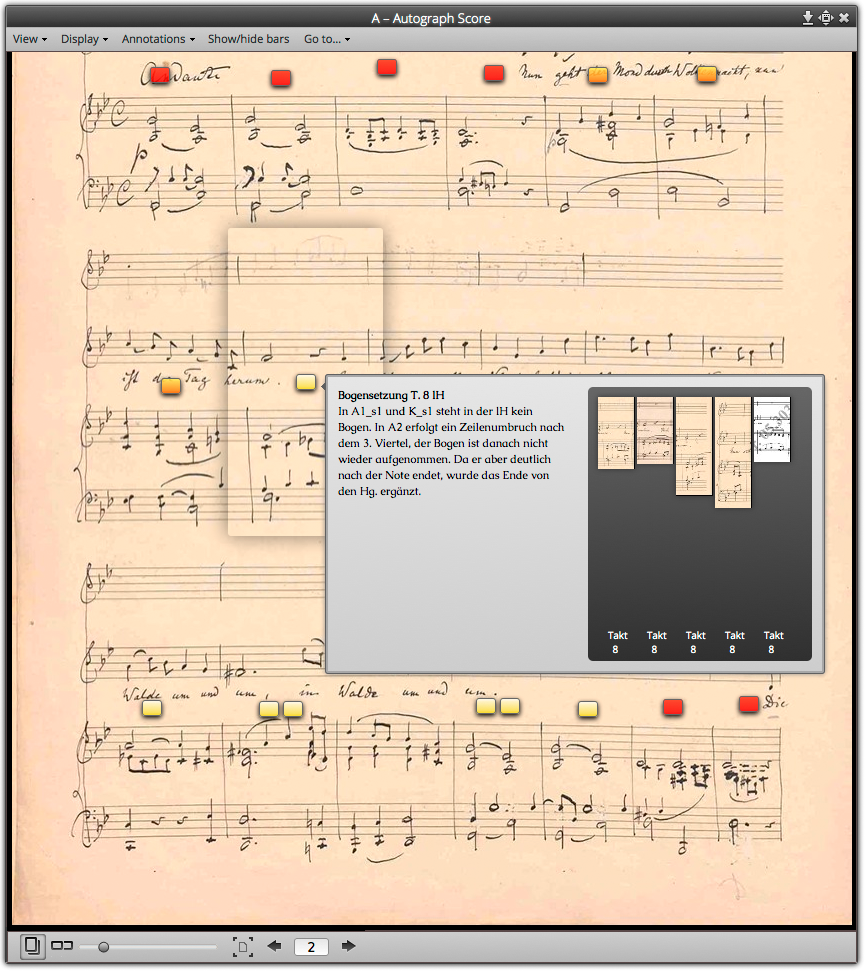 A – Autograph Score
View Display Annotations Show/hide bars Go to...
Andante
Nun geht der Mond durch
p
ist der Tag herum.
Bogensetzung T. 8 lH
In A1_s1 und K_s1 steht in der lH kein
Bogen. In A2 erfolgt ein Zeilenumbruch nach
dem 3. Viertel, der Bogen ist danach nicht
wieder aufgenommen. Da er aber deutlich
nach der Note endet, wurde das Ende von
den Hg. ergänzt.
Takt Takt Takt Takt Takt
8 8 8 8 8
Walde um und um, im Walde um und um.
Die
2